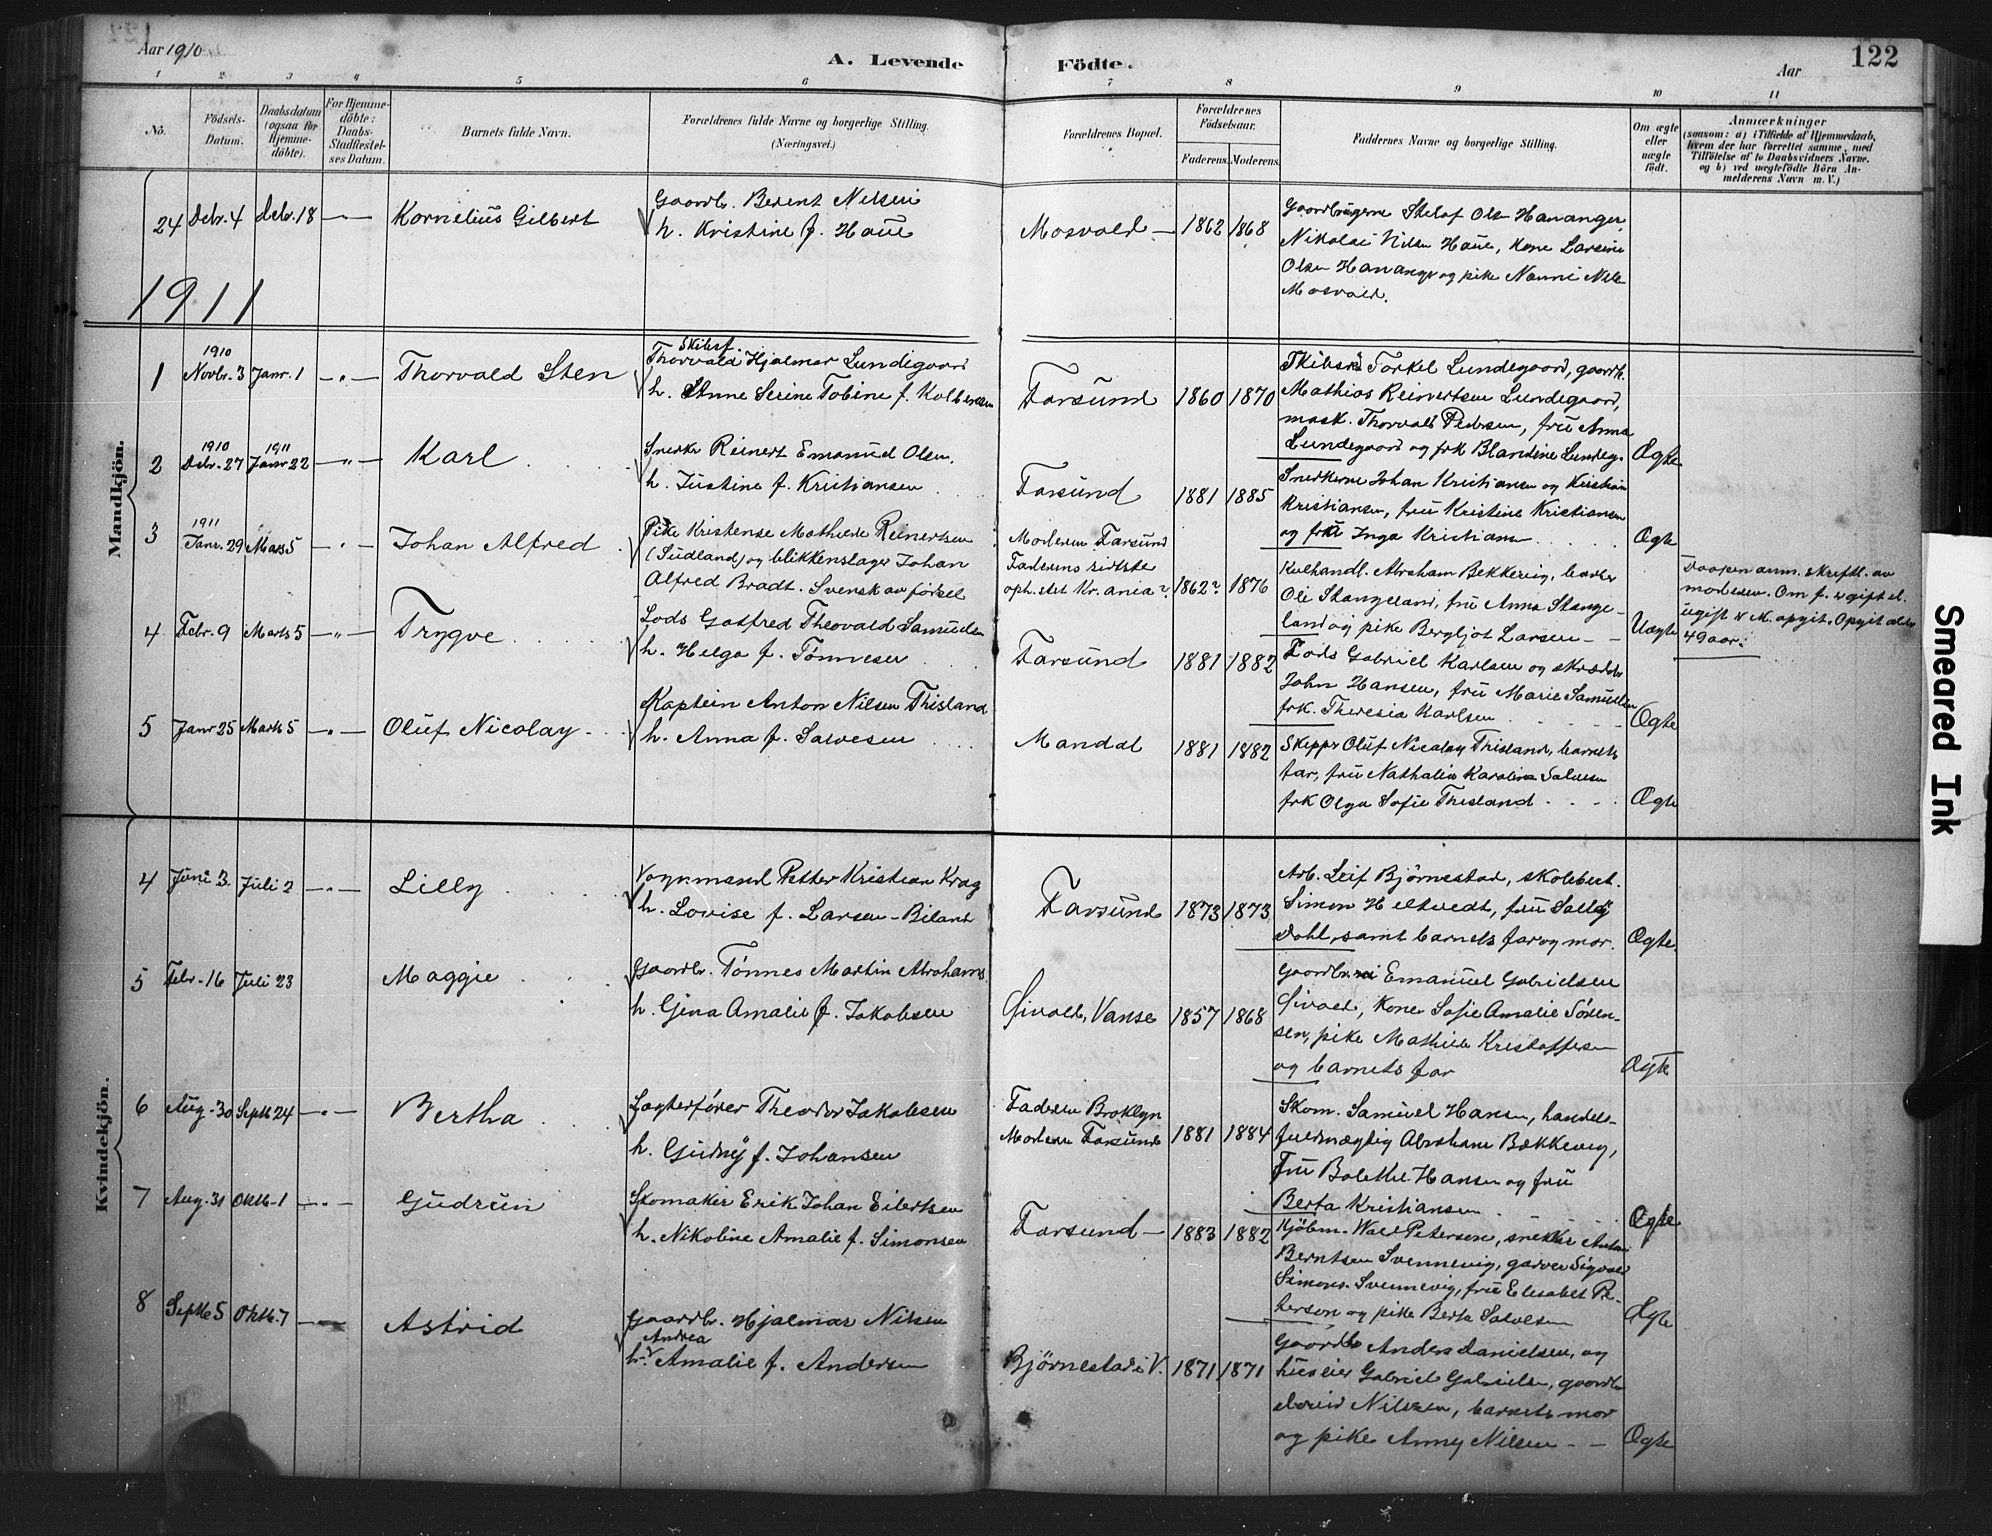 Aar 1910
A. Levende Födte.
Aar
122
1 2 3 4 5 6 7 8 9 10 11
No.
Födsels-
Datum.
Daabsdatum
(ogsaa for
Hjemme-
döbte).
For Hjemme-
döbte:
Daabs-
Stadfæstel-
ses Datum.
Barnets fulde Navn.
Forældrenes fulde Navne og borgerlige Stilling.
(Næringsvei.)
Forældrenes Bopæl.
Forældrenes
Födselsaar.
Faderens. Moderens.
Faddernes Navne og borgerlige Stilling.
Om ægte
eller
uægte
födt.
Anmærkninger
(saasom: a) i Tilfælde af Hjemmedaab,
hvem der har forrettet samme, med
Tilföielse af to Daabsvidners Navne,
og b) ved uægtefödte Börn An-
melderens Navn m. V.)
24 Debr. 4 Debr. 18 Kornelius Gilbert
Gaardbr. Berent Nilsen
h. Kristine f. Haue
Mosvold 1862 1868
Gaardbrugerne Stelaf Olsen Hananger,
Nikolai Nilsen Haue, Kone Larsine
Olsen Hananger og pike Nanni Nils.
Mosvold.
1911
Mandkjön.
1 1910 Novbr. 3 Janr. 1 Thorvald Sten
Skibsf.
Thorvald Hjalmar Lundegaard
h. Anne Serine Tobine f. Kolbensen
Farsund 1860 1870
Skibsr. Torkel Lundegaard, gaardb.
Mathias Reinertsen Lundegaard,
mask. Thorvald Pedersen, fru Anna
Lundegaard og frk Blandine Lundeg.
Ægte
2 1910 Debr. 27 1911 Janr 22 Karl
Snerker Reinert Emanuel Olsen
h. Justine f. Kristiansen
Farsund 1881 1885
Snerkerne Johan Kristiansen og Kristian
Kristiansen, fru Kristine Kristiansen
og fru Inga Kristiansen
Ægte
3 1911 Janr. 29 Marts 5 Johan Alfred
Pike Kristense Mathilde Reinertsen
(Sudland) og blikkenslager Johan
Alfred Bradt. Svensk av fødsel
Moderen Farsund
Faderens sidste
oph.sted Kr.ania? 1862? 1876
Kulhandl. Abraham Bekkevig, barber
Ole Stangeland, fru Anna Stange-
land og pike Bergljot Larsen
Uægte
Daapen anm. skriftl. av
moderen. Om f. er gift el.
ugift er ik. opgit. Opgit alder
49 aar.
4 Febr. 9 Marts 5 Trygve
Lods Gotfred Theovald Samuelsen
h. Helga f. Tønnesen
Farsund 1881 1882
Lods Gabriel Karlsen og skrædder
John Hansen, fru Marie Samuelsen
frk. Theresia Karlsen
Ægte
5 Janr 25 Marts 5 Oluf Nicolay
Kaptein Anton Nilsen Thisland
h. Anna f. Salvesen
Mandal 1881 1882
Skipper Oluf Nicolay Thisland, barnets
far, fru Nathalie Karoline Salvesen
frk Olga Sofie Thisland
Ægte
Kvindekjön.
4 Juni 3. Juli 2 Lilly
Vognmand Petter Kristian Krag
h. Lovise f. Larsen-Biland
Farsund 1873 1873
Arb. Leif Bjørnestad, skolebest.
Simon Heltvedt, fru Sally
Dahl, samt barnets far og mor.
Ægte.
5 Febr. 16 Juli 23 Maggie
Gaardbr. Tønnes Martin Abrahams.
h. Gina Amalie f. Jakobsen
Øivold, Vanse 1857 1868
Gaardbr. Emanuel Gabrielsen
Øivold, Kone Sofie Amalie Søren-
sen, pike Mathilde Kristoffersen
og barnets far
Ægte
6 Aug. 30 Septb 24 Bertha
Lagterfører Theodor Jakobsen
h. Gudny f. Johansen
Faderen Broklyn
Moderen Farsund 1881 1884
Skom. Samuel Hansen, handels-
fuldmægtig Abraham Bækkevig,
Fru Bolethe Hansen og fru
Berta Kristiansen
Ægte
7 Aug. 31 Oktb. 1 Gudrun
Skomaker Erik Johan Eilertsen
h. Nikoline Amalie f. Simonsen
Farsund 1883 1882
Kjøbm. Wall Petersen, snekker Anton
Berntsen Svennevig, garver Sigvald
Simons. Svennevig, fru Elisabet Pe-
tersen og pike Berta Salvesen
Ægte
8 Septb 5 Oktb. 7 Astrid
Gaardbr. Hjalmar Nilsen
Andrea
h. Amalie f. Andersen
Bjørnestad i V. 1871 1871
Gaardbr Anders Danielsen, og
huseier Gabriel Gabrielsen, gaardb
David Nilsen, barnets mor
og pike Anny Nilsen
Ægte
Smeared Ink